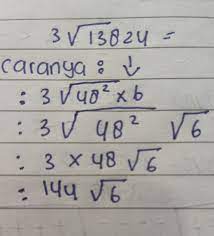 3√13824 =
caranya : ↓
: 3√48² × 6
: 3√48² √6
: 3 × 48 √6
: 144 √6